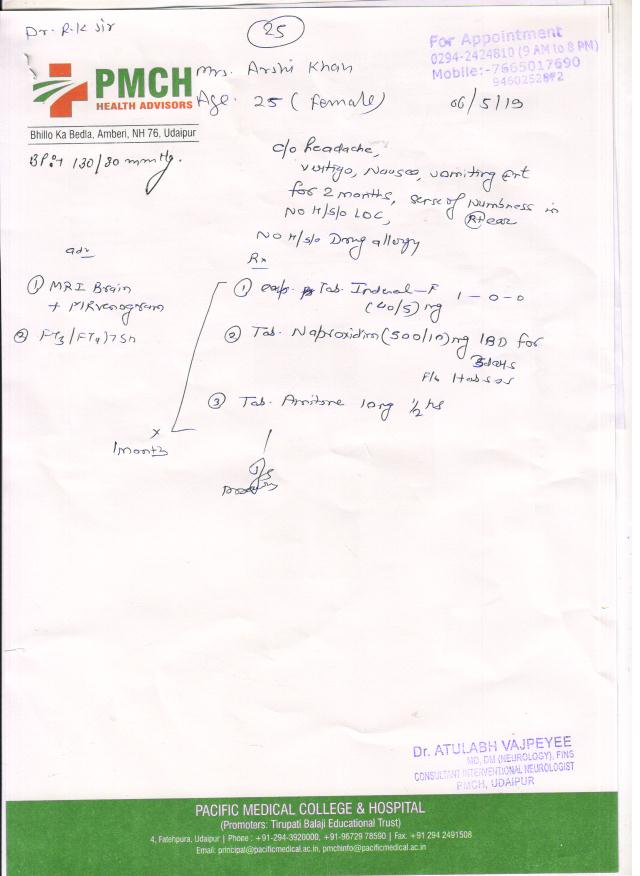 Dr. R.K Sir
25
For Appointment
0294-2424810 (9 AM to 8 PM)
Mobile:-7665017690
PMCH
HEALTH ADVISORS
Mrs. Arshi Khan
Age. 25 (female)
06/5/19
Bhillo Ka Bedla, Amberi, NH 76, Udaipur
BP:+ 130/80 mmHg.
c/o headache,
vertigo, Nausea, vomiting
for 2 months, sense of Numbness in
Rt ear
NO H/s/o LOC,
NO H/s/o Drug allergy
adv
Rx
① MRI Brain
+ MRvenogram
② FT3/FT4/TSH
① Tab. Inderal-F 1-0-0
(40/5) mg
② Tab. Naproxidom (500/10) mg 1BD for
5 days
③ Tab. Amitone 10mg 1/2 hs
x
1 month
Dr. ATULABH VAJPEYEE
MD, DM (NEUROLOGY), FINS
CONSULTANT INTERVENTIONAL NEUROLOGIST
PMCH, UDAIPUR
PACIFIC MEDICAL COLLEGE & HOSPITAL
(Promoters: Tirupati Balaji Educational Trust)
4, Fatehpura, Udaipur | Phone : +91-294-3920000, +91-96729 78590 | Fax: +91 294 2491508
Email: principal@pacificmedical.ac.in, pmchinfo@pacificmedical.ac.in